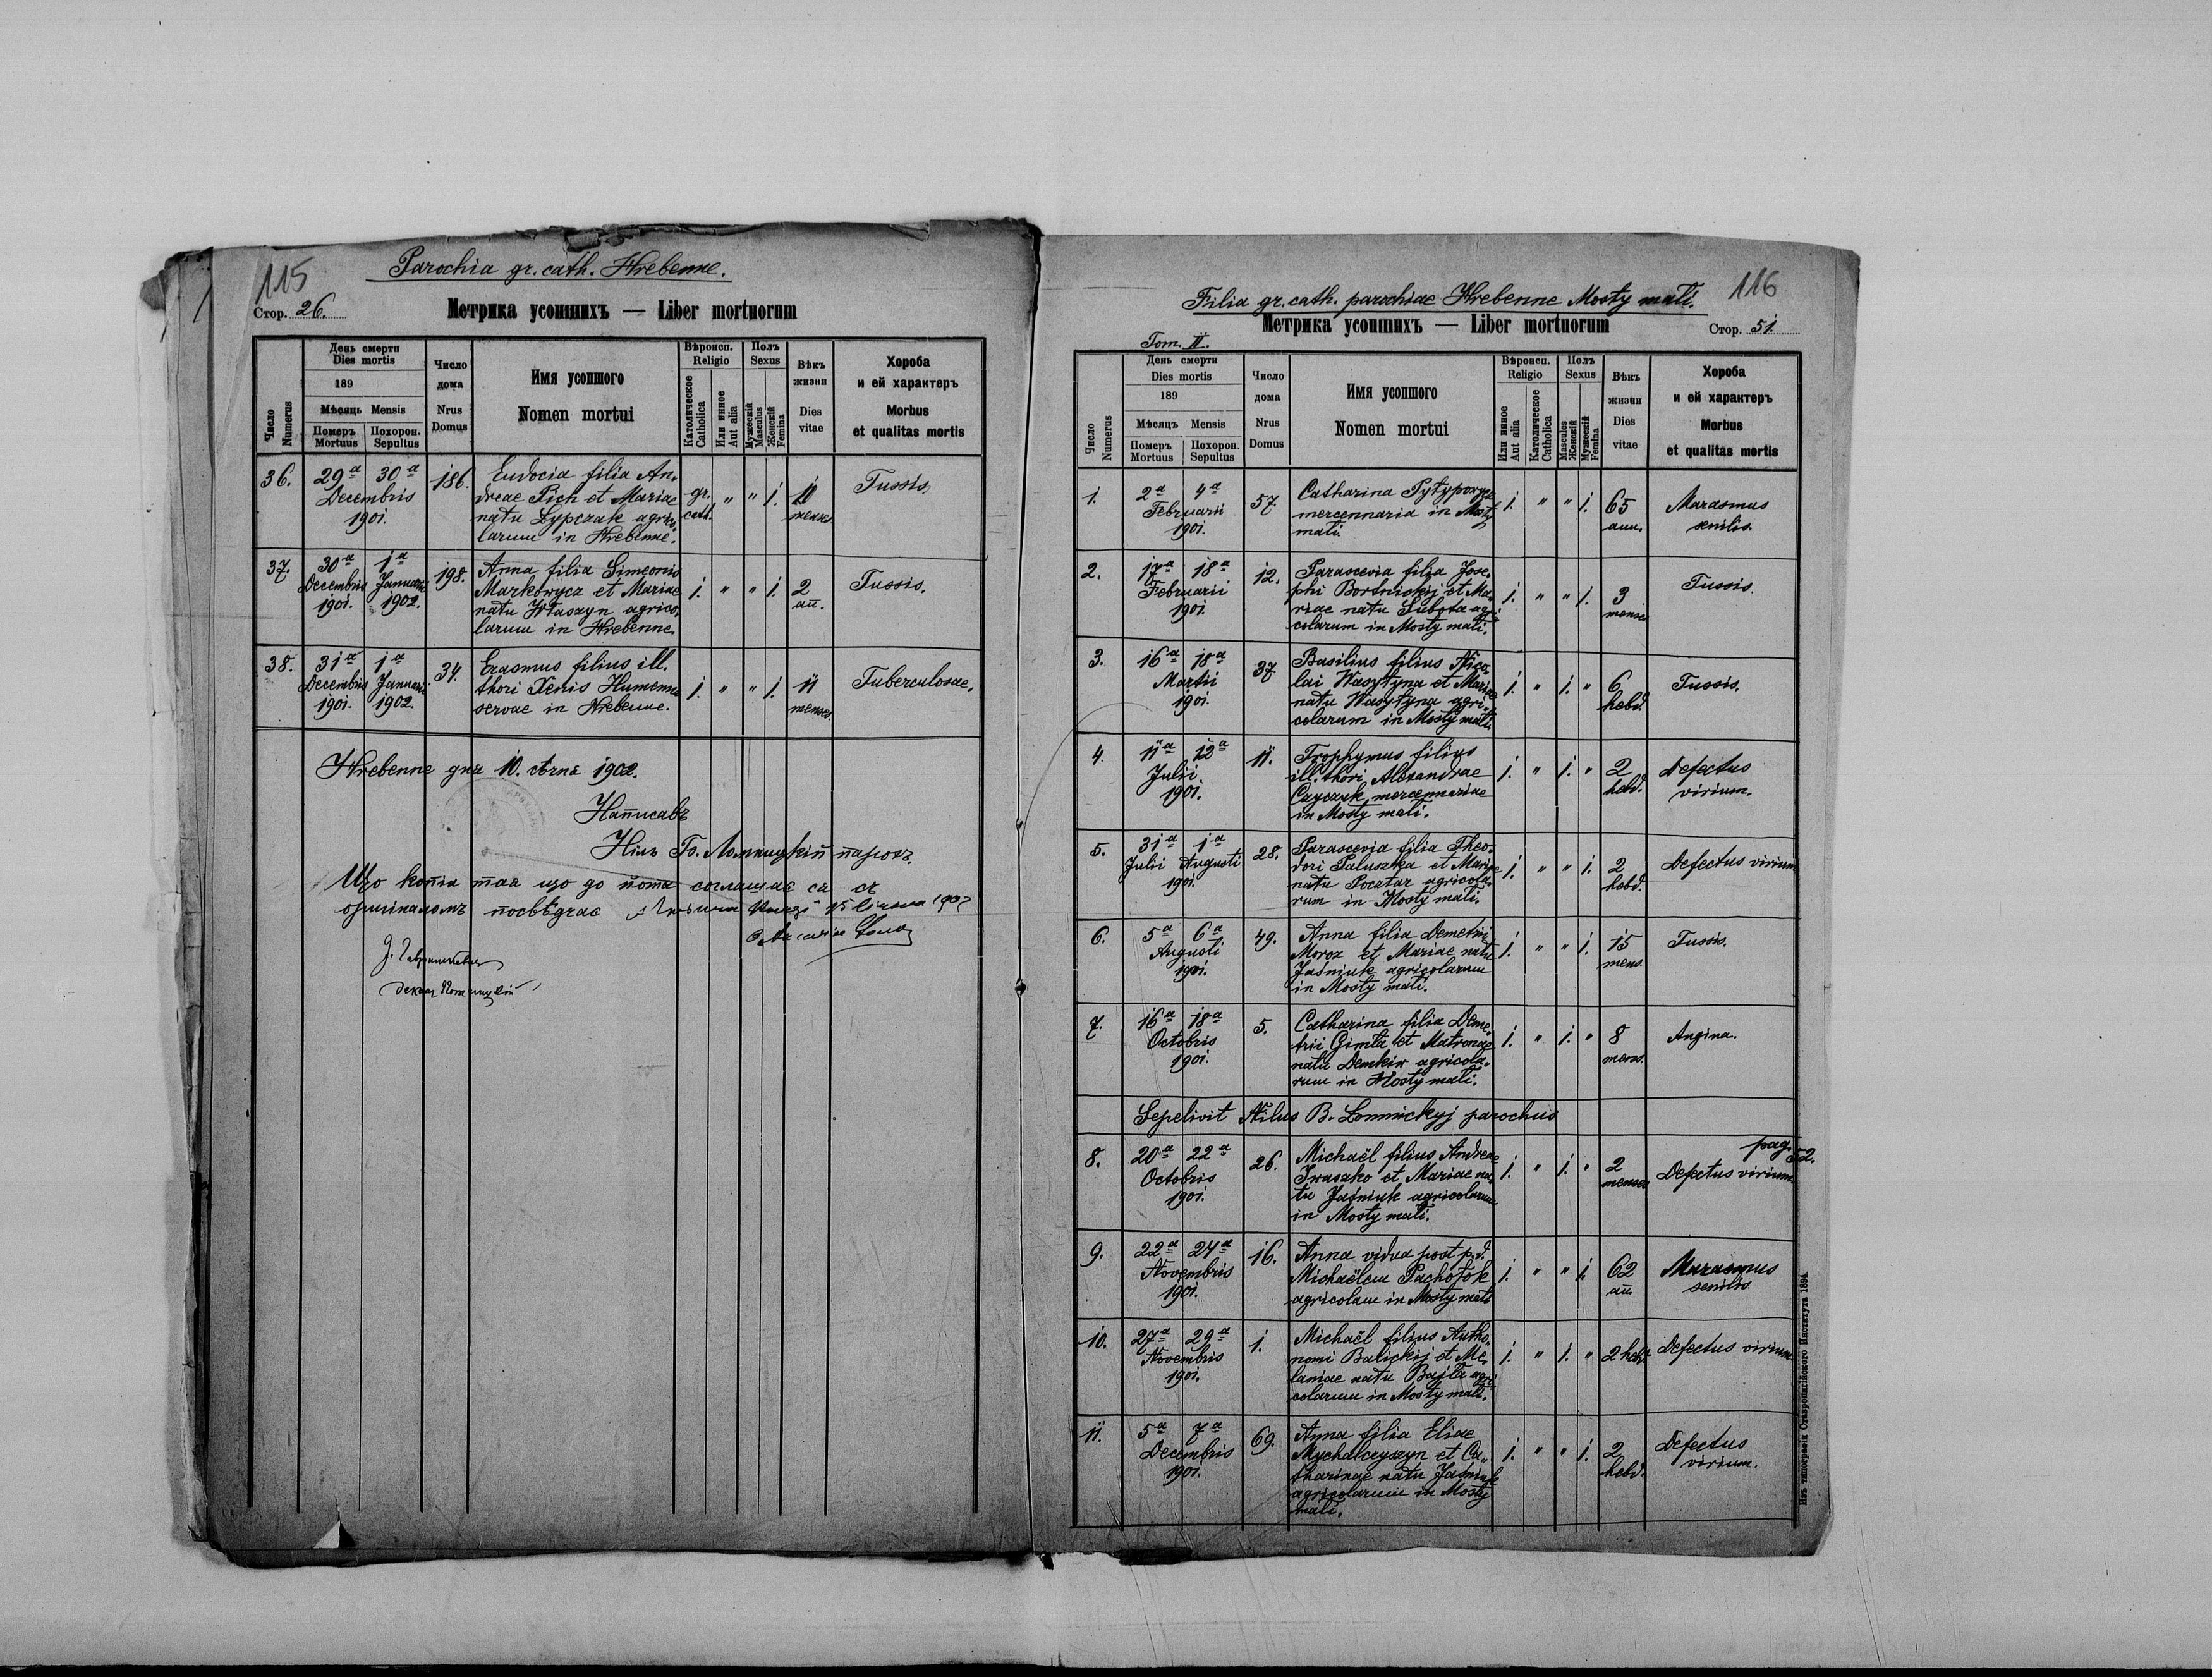 115
Parochia gr. cath. Hrebenne.
Стор. 26.
Метрика усопшихъ — Liber mortuorum
Число Numerus
День смерти
Dies mortis
189
Мѣсяць Mensis
Померъ Mortuus
Похорон. Sepultus
Число дома
Nrus Domus
Имя усопшого
Nomen mortui
Вѣроисп.
Religio
Католическое Catholica
Или инное Aut alia
Полъ
Sexus
Мужескій Masculus
Женскій Femina
Вѣкъ жизни
Dies vitae
Хороба
и ей характеръ
Morbus
et qualitas mortis
36. 29a 30a 186. Eudocia filia An-
Decembris dreae Pich et Mariae gr. " " 1. 11 Tussis.
1901. natu Lypczak agrico- cath. menses
larum in Hrebenne.
37. 30a 1a 198. Anna filia Simeonis
Decembris Januarii Markowycz et Mariae 1. " " 1. 2 Tussis.
1901. 1902. natu agrico- an.
larum in Hrebenne.
38. 31a 1a 34. Erasmus filius ill.
Decembris Januarii thori Xenis 1. " " 1. 11 Tuberculosae.
1901. 1902. servae in Hrebenne. menses
Hrebenne дня 10. 1902.
Написавъ
Нілъ Б. Ломницкій парохъ.
Що копія тая що до йота соглашає ся съ
оригиналомъ посвѣдчає
116
Filia gr. cath. parochiae Hrebenne Mosty małi.
Метрика усопшихъ — Liber mortuorum
Стор. 51.
Tom. II.
Число Numerus
День смерти
Dies mortis
189
Мѣсяцъ Mensis
Померъ Mortuus
Похорон. Sepultus
Число дома
Nrus Domus
Имя усопшого
Nomen mortui
Вѣроисп.
Religio
Или инное Aut alia
Католическое Catholica
Полъ
Sexus
Mascules Женскій
Мужескій Femina
Вѣкъ жизни
Dies vitae
Хороба
и ей характеръ
Morbus
et qualitas mortis
1. 2a 4a 57. Catharina
Februarii mercennaria in Mosty 1. " " 1. 65 Marasmus
1901. małi. ann. senilis.
2. 17a 18a 12. Parascevia filia Jose-
Februarii phi Bortnickij et Ma- 1. " " 1. 3 Tussis.
1901. riae natu Subota agri- menses
colarum in Mosty małi.
3. 16a 18a 37 Basilius filius Nico-
Martii lai Wasyłyna et Mariae 1. " 1. " 6 Tussis.
1901. natu Wasyłyna agri- hebd.
colarum in Mosty małi.
4. 11a 12a 11. Trophymus filius
Julii ill. thori Alexandrae 1. " 1. " 2 Defectus
1901. mercennariae hebd. virium.
in Mosty małi.
5. 31a 1a 28. Parascevia filia Theo-
Julii Augusti dori Paluszka et Mariae 1. " " 1. 2 Defectus virium
1901. natu Pocztar agricola- hebd.
rum in Mosty małi.
6. 5a 6a 49. Anna filia Demetrii
Augusti Moroz et Mariae natu 1. " " 1. 15 Tussis.
1901. Jaśniuk agricolarum mens.
in Mosty małi.
7. 16a 18a 5. Catharina filia Deme-
Octobris trii Gimla et Matronae 1. " 1. " 8 Angina.
1901. natu Demkiw agricola- mens.
rum in Mosty małi.
Sepelivit Nilus B. Łomnickyj parochus
pag. 52.
8. 20a 22a 26. Michaël filius Andreae
Octobris Iwaszko et Mariae na- 1. " 1. " 2 Defectus virium.
1901. tu Jaśniuk agricolarum menses
in Mosty małi.
9. 22a 24a 16. Anna vidua post p. d.
Novembris Michaëlem Pachołok 1. " " 1. 62 Marasmus
1901. agricolam in Mosty małi an. senilis.
10. 27a 29a 1. Michaël filius Antho-
Novembris nomi Balickij et Me- 1. " 1. " 2 hebd. Defectus virium
1901. laniae natu Bajła agri-
colarum in Mosty małi.
11. 5a 7a 69. Anna filia Eliae
Decembris Mychalczyszyn et Ca- 1. " " 1. 2 Defectus
1901. tharinae natu Jaśniuk hebd. virium.
agricolarum in Mosty
małi.
Изъ типографіи Ставропигійского Института 1894.